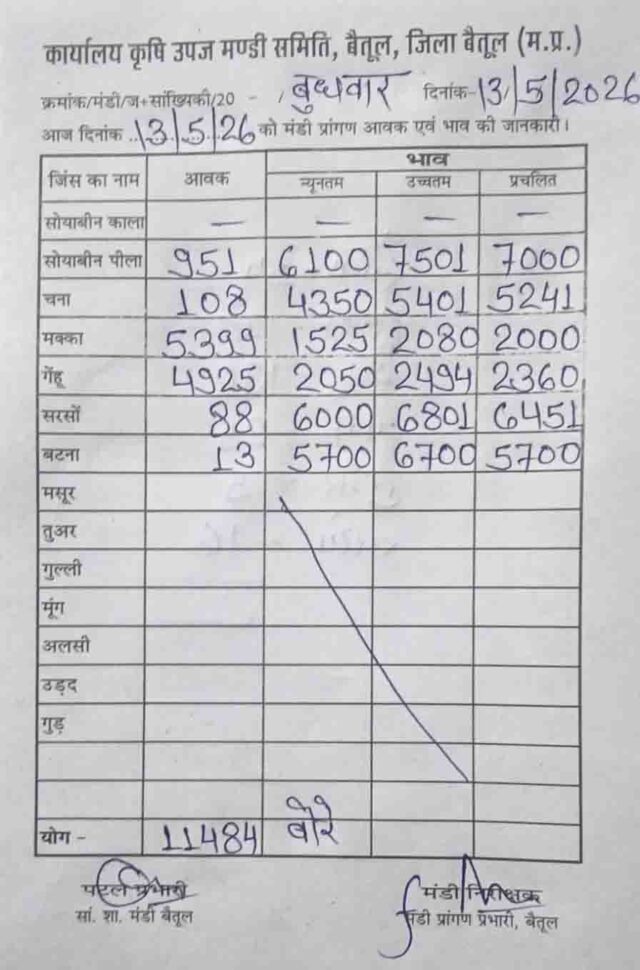 कार्यालय कृषि उपज मण्डी समिति, बैतूल, जिला बैतूल (म.प्र.)
क्रमांक/मंडी/ज+सांख्यिकी/20 - / बुधवार दिनांक-13/5/2026
आज दिनांक ..13/5/26 को मंडी प्रांगण आवक एवं भाव की जानकारी।
जिंस का नाम आवक भाव
न्यूनतम उच्चतम प्रचलित
सोयाबीन काला — — — —
सोयाबीन पीला 951 6100 7501 7000
चना 108 4350 5401 5241
मक्का 5399 1525 2080 2000
गेंहू 4925 2050 2494 2360
सरसों 88 6000 6801 6451
बटना 13 5700 6700 5700
मसूर
तुअर
गुल्ली
मूंग
अलसी
उड़द
गुड़
योग - 11484 बोरे
पटल प्रभारी मंडी निरीक्षक
सां. शा. मंडी बैतूल मंडी प्रांगण प्रभारी, बैतूल